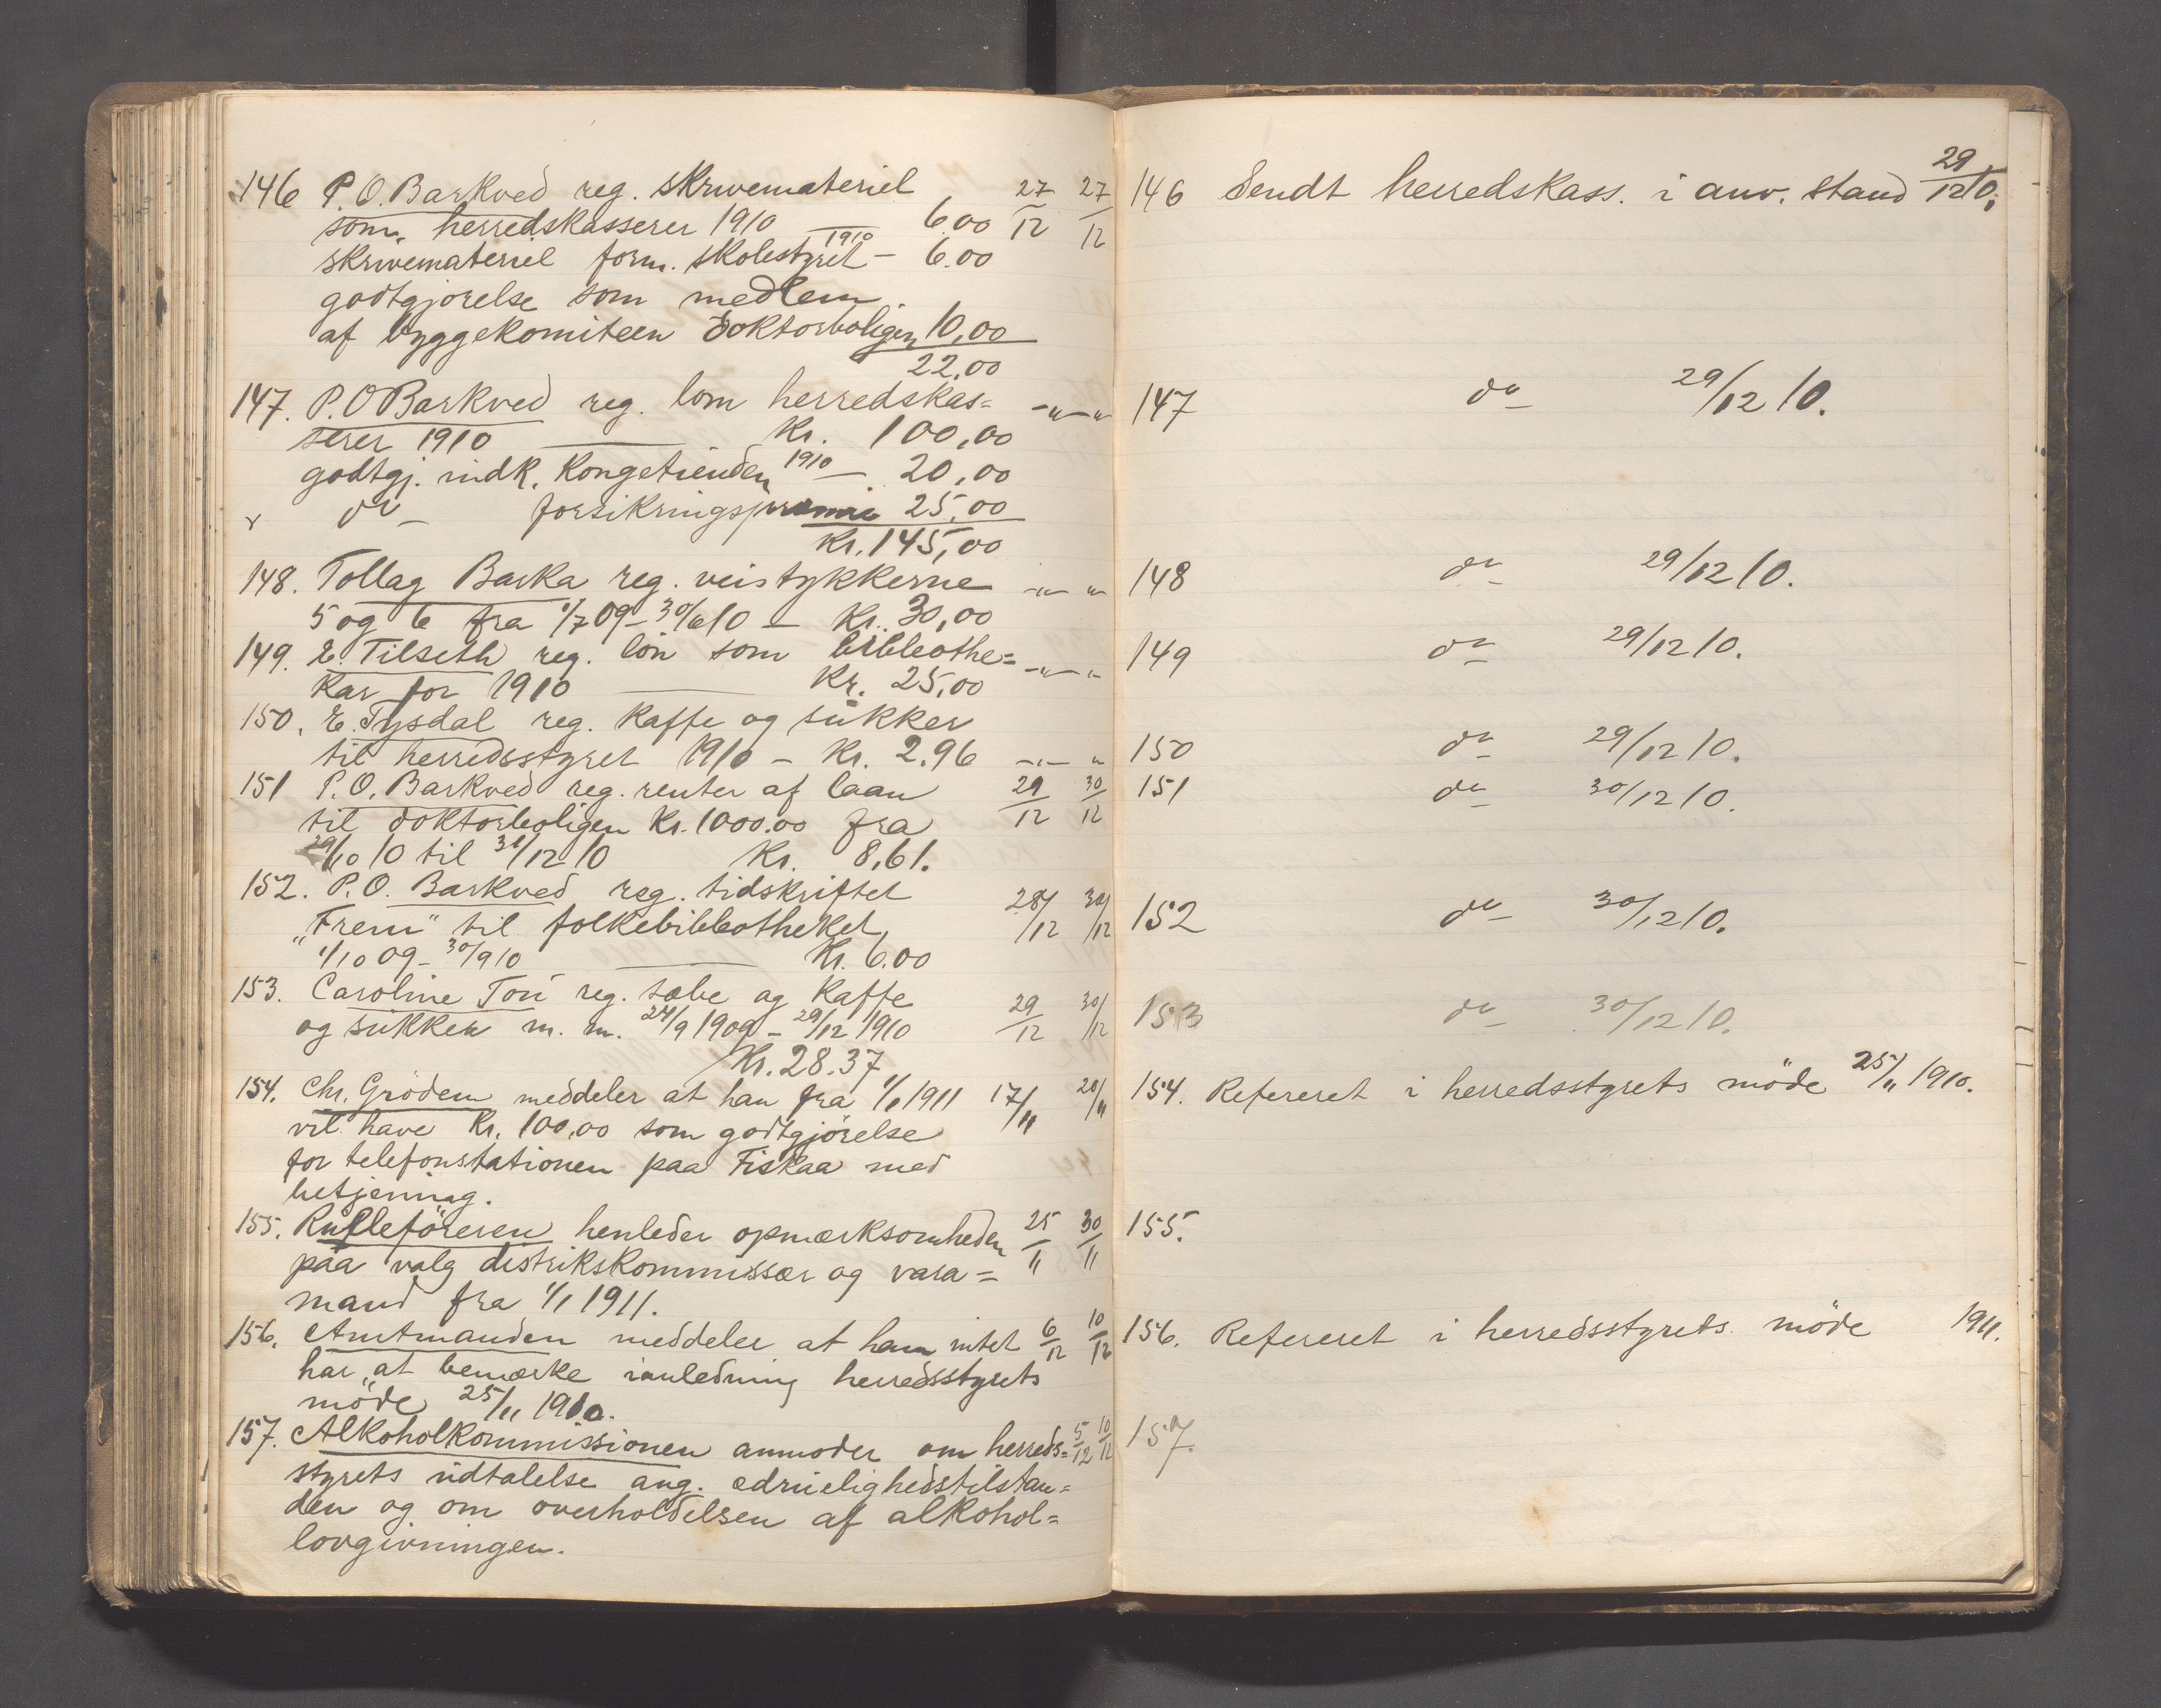 146 P. O. Barkved reg. skrivemateriel 27/12 27/12
som herredskasserer 1910 — 6.00
skrivemateriel form. skolestyret 1910 — 6.00
godtgjörelse som medlem
af byggekomiteen doktorboligen 10,00
22,00
147. P. O Barkved reg. lön herredskas= -"- "
serer 1910 — Kr. 100,00
godtgj. indk. Kongetienden 1910 — 20,00
" do — forsikringspræmie 25,00
Kr. 145,00
148. Tollag Barka reg. veistykkerne -"- "
5 og 6 fra 1/7 09 – 30/6 10 — Kr. 30,00
149. E. Tilseth reg. lön som bibliothe= -"- "
kar for 1910 — Kr. 25,00
150. E. Tysdal reg. kaffe og sukker
til herredsstyret 1910 — Kr. 2.96 -"- "
151 P. O. Barkved reg. renter af laan 29/12 30/12
til doktorboligen Kr. 1000.00 fra
29/10 10 til 31/12 10 Kr. 8,61.
152. P. O. Barkved reg. tidskriftet 28/12 30/12
"Frem" til folkebibliotheket
1/10 09 – 30/9 10 — Kr. 6.00
153. Caroline Tou reg. sæbe og kaffe 29/12 30/12
og sukker m. m. 24/9 1909 – 29/12 1910
Kr. 28.37
154. Chr. Grödem meddeler at han fra 1/1 1911 17/11 20/11
vil have Kr. 100,00 som godtgjörelse
for telefonstationen paa Fiskaa med
betjening.
155. Rulleföreren henleder opmærksomheden 25/11 30/11
paa valg distrikskommissær og vara=
mand fra 1/1 1911.
156. Amtmanden meddeler at han intet 6/12 10/12
har at bemærke ianledning herredsstyrets
möde 25/11 1910.
157. Alkoholkommissionen anmoder om herreds= 5/12 10/12
styrets udtalelse ang. ædruelighedstilstan=
den og om overholdelsen af alkohol=
lovgivningen.
146 Sendt herredskass. i anv. stand 29/12 10.
147 do — 29/12 10.
148 do — 29/12 10.
149 do — 29/12 10.
150 do — 29/12 10.
151 do — 30/12 10.
152 do — 30/12 10.
153 do — 30/12 10.
154. Refereret i herredsstyrets möde 25/11 1910.
155.
156. Refereret i herredsstyrets möde 1911.
157.